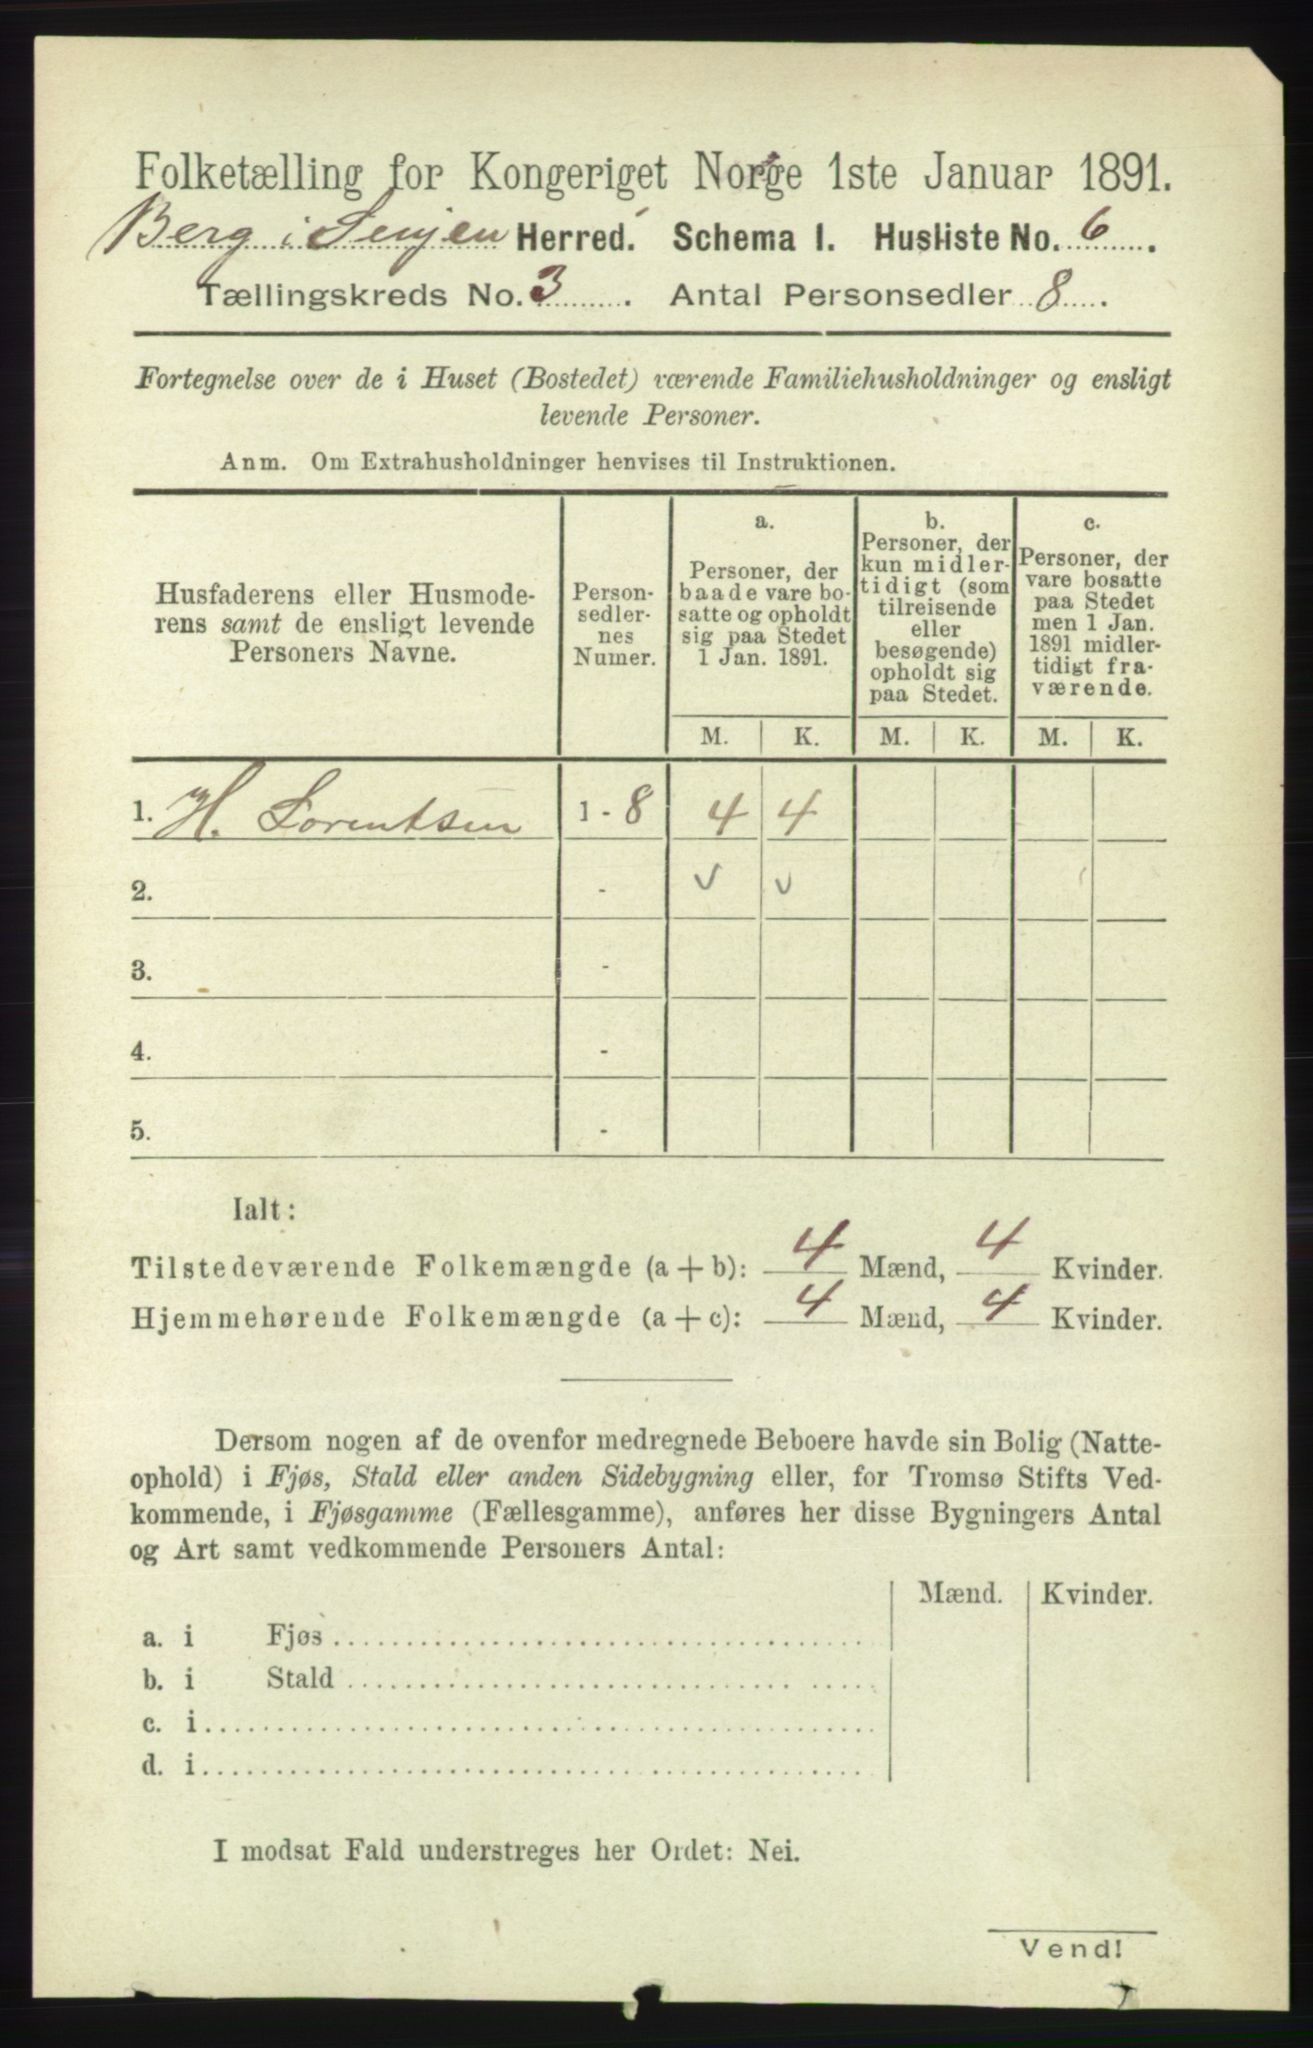 Folketælling for Kongeriget Norge 1ste Januar 1891.
Berg i Senjen Herred. Schema 1. Husliste No. 6.
Tællingskreds No. 3. Antal Personsedler 8.
Fortegnelse over de i Huset (Bostedet) værende Familiehusholdninger og ensligt
levende Personer.
Anm. Om Extrahusholdninger henvises til Instruktionen.
Husfaderens eller Husmode-
rens samt de ensligt levende
Personers Navne.
Person-
sedler-
nes
Numer.
a.
Personer, der
baade vare bo-
satte og opholdt
sig paa Stedet
1 Jan. 1891.
b.
Personer, der
kun midler-
tidigt (som
tilreisende
eller
besøgende)
opholdt sig
paa Stedet.
c.
Personer, der
vare bosatte
paa Stedet
men 1 Jan.
1891 midler-
tidigt fra-
værende.
M. K. M. K. M. K.
1. H. Lorentsen 1 - 8 4 4
2. -
3. -
4. -
5. -
Ialt:
Tilstedeværende Folkemængde (a + b): 4 Mænd, 4 Kvinder.
Hjemmehørende Folkemængde (a + c): 4 Mænd, 4 Kvinder.
Dersom nogen af de ovenfor medregnede Beboere havde sin Bolig (Natte-
ophold) i Fjøs, Stald eller anden Sidebygning eller, for Tromsø Stifts Ved-
kommende, i Fjøsgamme (Fællesgamme), anføres her disse Bygningers Antal
og Art samt vedkommende Personers Antal:
Mænd. Kvinder.
a. i Fjøs
b. i Stald
c. i
d. i
I modsat Fald understreges her Ordet: Nei.
Vend!